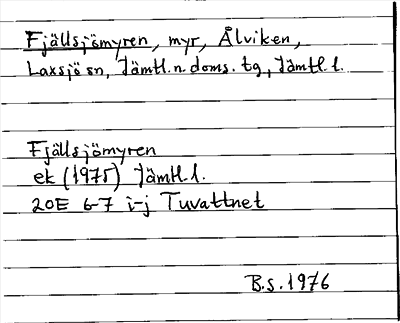 Fjällsjömyren, myr, Ålviken,
Laxsjö sn, Jämtl. n. doms. tg, Jämtl. l.
Fjällsjömyren
ek (1975) Jämtl. l.
20E 6-7 i-j Tuvattnet
B.S. 1976